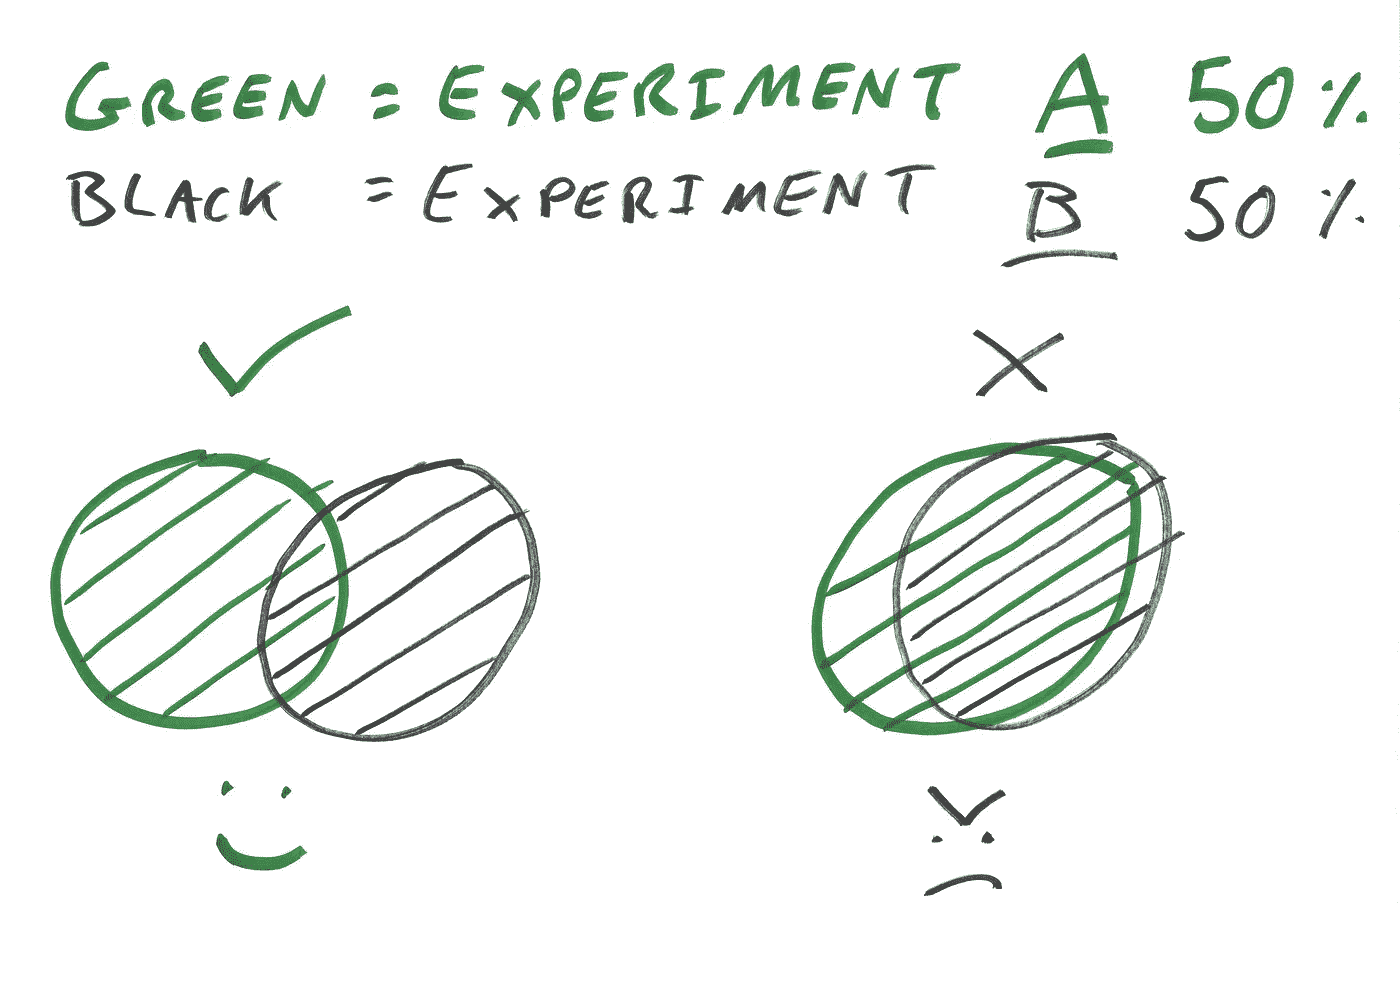 GREEN = EXPERIMENT A 50%
BLACK = EXPERIMENT B 50%